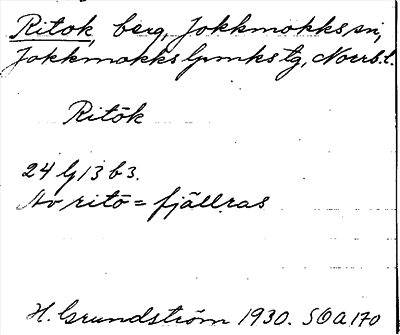 Ritok, berg, Jokkmokks sn,
Jokkmokks lpmks tg, Norrb. l.
Ritōk
24 G 13 b 3.
Av ritō = fjällras
H. Grundström 1930. SOA 170